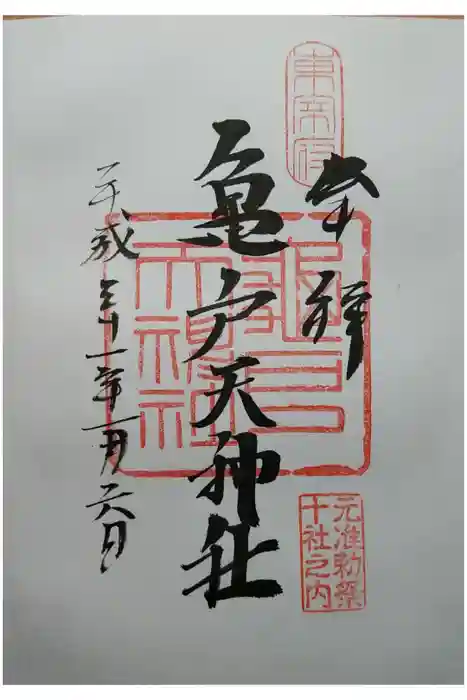 東宰府
奉拝
龜戸
天神社
亀戸天神社
元准勅祭
十社之内
平成三十一年一月六日